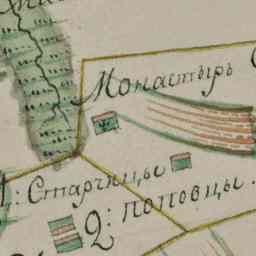 Монастырь
1: Старчицы
2: поповцы.